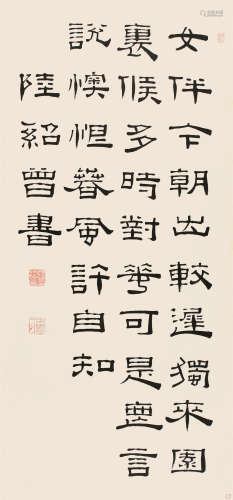 女伴今朝出較遲獨來園
裏候多時對花可是無言
說懊怛春風許自知
陸紹曾書